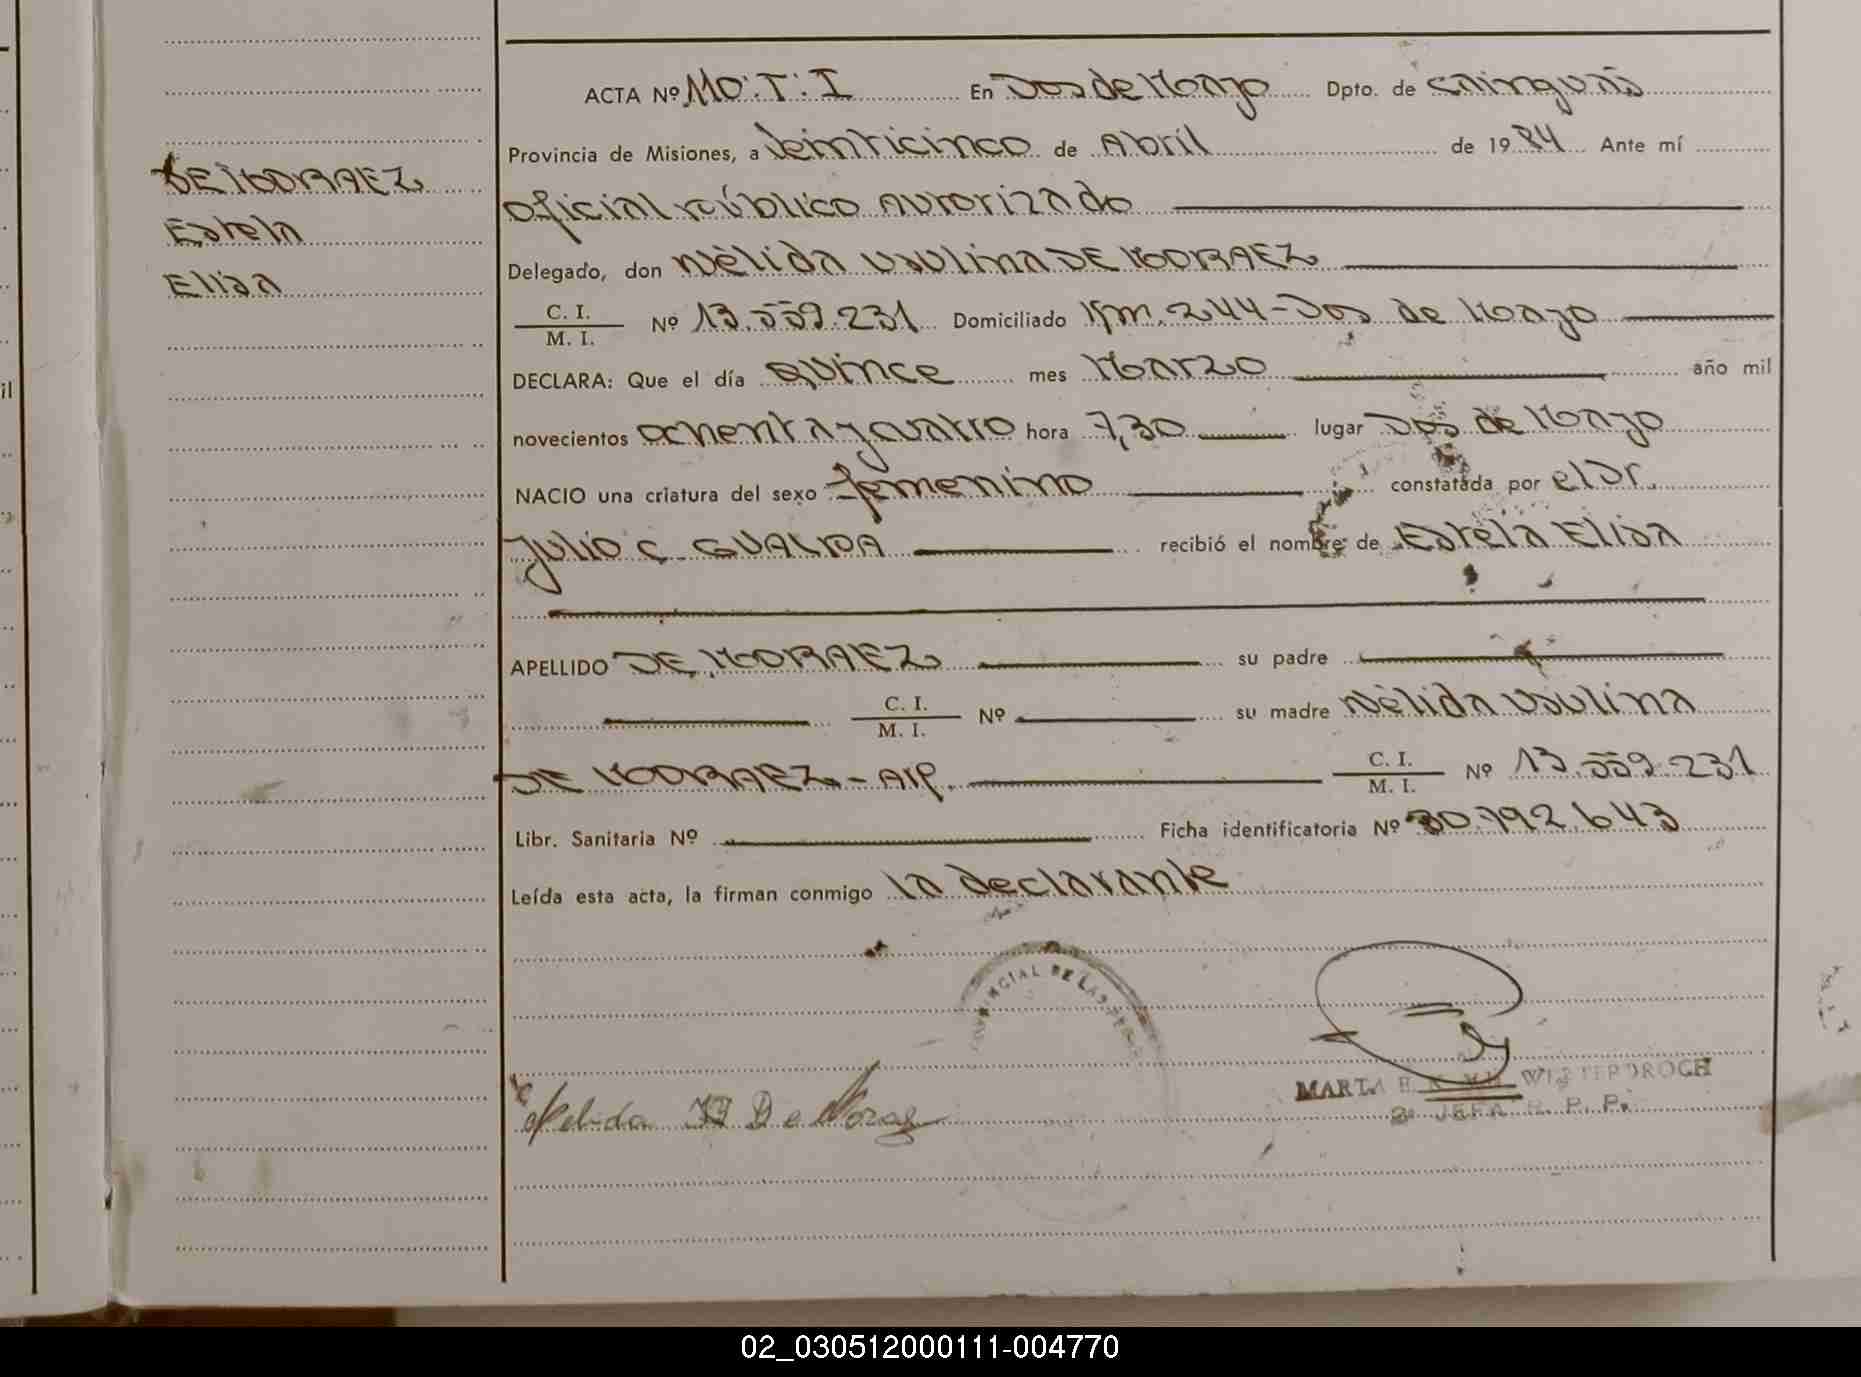 ACTA Nº 110: T: I En Dos de Mayo Dpto. de Cainguás
Provincia de Misiones, a Veinticinco de Abril de 1984 Ante mí
oficial público autorizado
DE MORAEZ
Estela
Elisa
Delegado, don Nélida Usulina DE MORAEZ
C. I.
M. I.
Nº 13.559.231 Domiciliado Km. 244 - Dos de Mayo
DECLARA: Que el día Quince mes Marzo año mil
novecientos ochenta y cuatro hora 7,30 lugar Dos de Mayo
NACIO una criatura del sexo femenino constatada por el Dr.
Julio C. GUALDA recibió el nombre de Estela Elisa
APELLIDO DE MORAEZ su padre
C. I.
M. I.
Nº su madre Nélida Usulina
DE MORAEZ - Arg. C. I.
M. I.
Nº 13.559.231
Libr. Sanitaria Nº Ficha identificatoria Nº 30.792.643
Leída esta acta, la firman conmigo la declarante
PROVINCIAL DE LAS
Nelida De Moraez
MARTA
JEFA R. P. P.
il
02_030512000111-004770